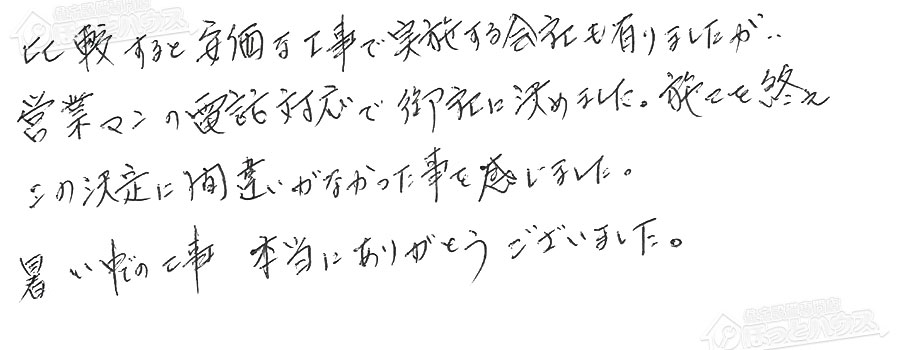 比較すると安価な工事で実施する会社も有りましたが..
営業マンの電話対応で御社に決めました。施工を終え
この決定に間違いがなかった事を感じました。
暑い中での工事 本当にありがとうございました。
ほっとハウス